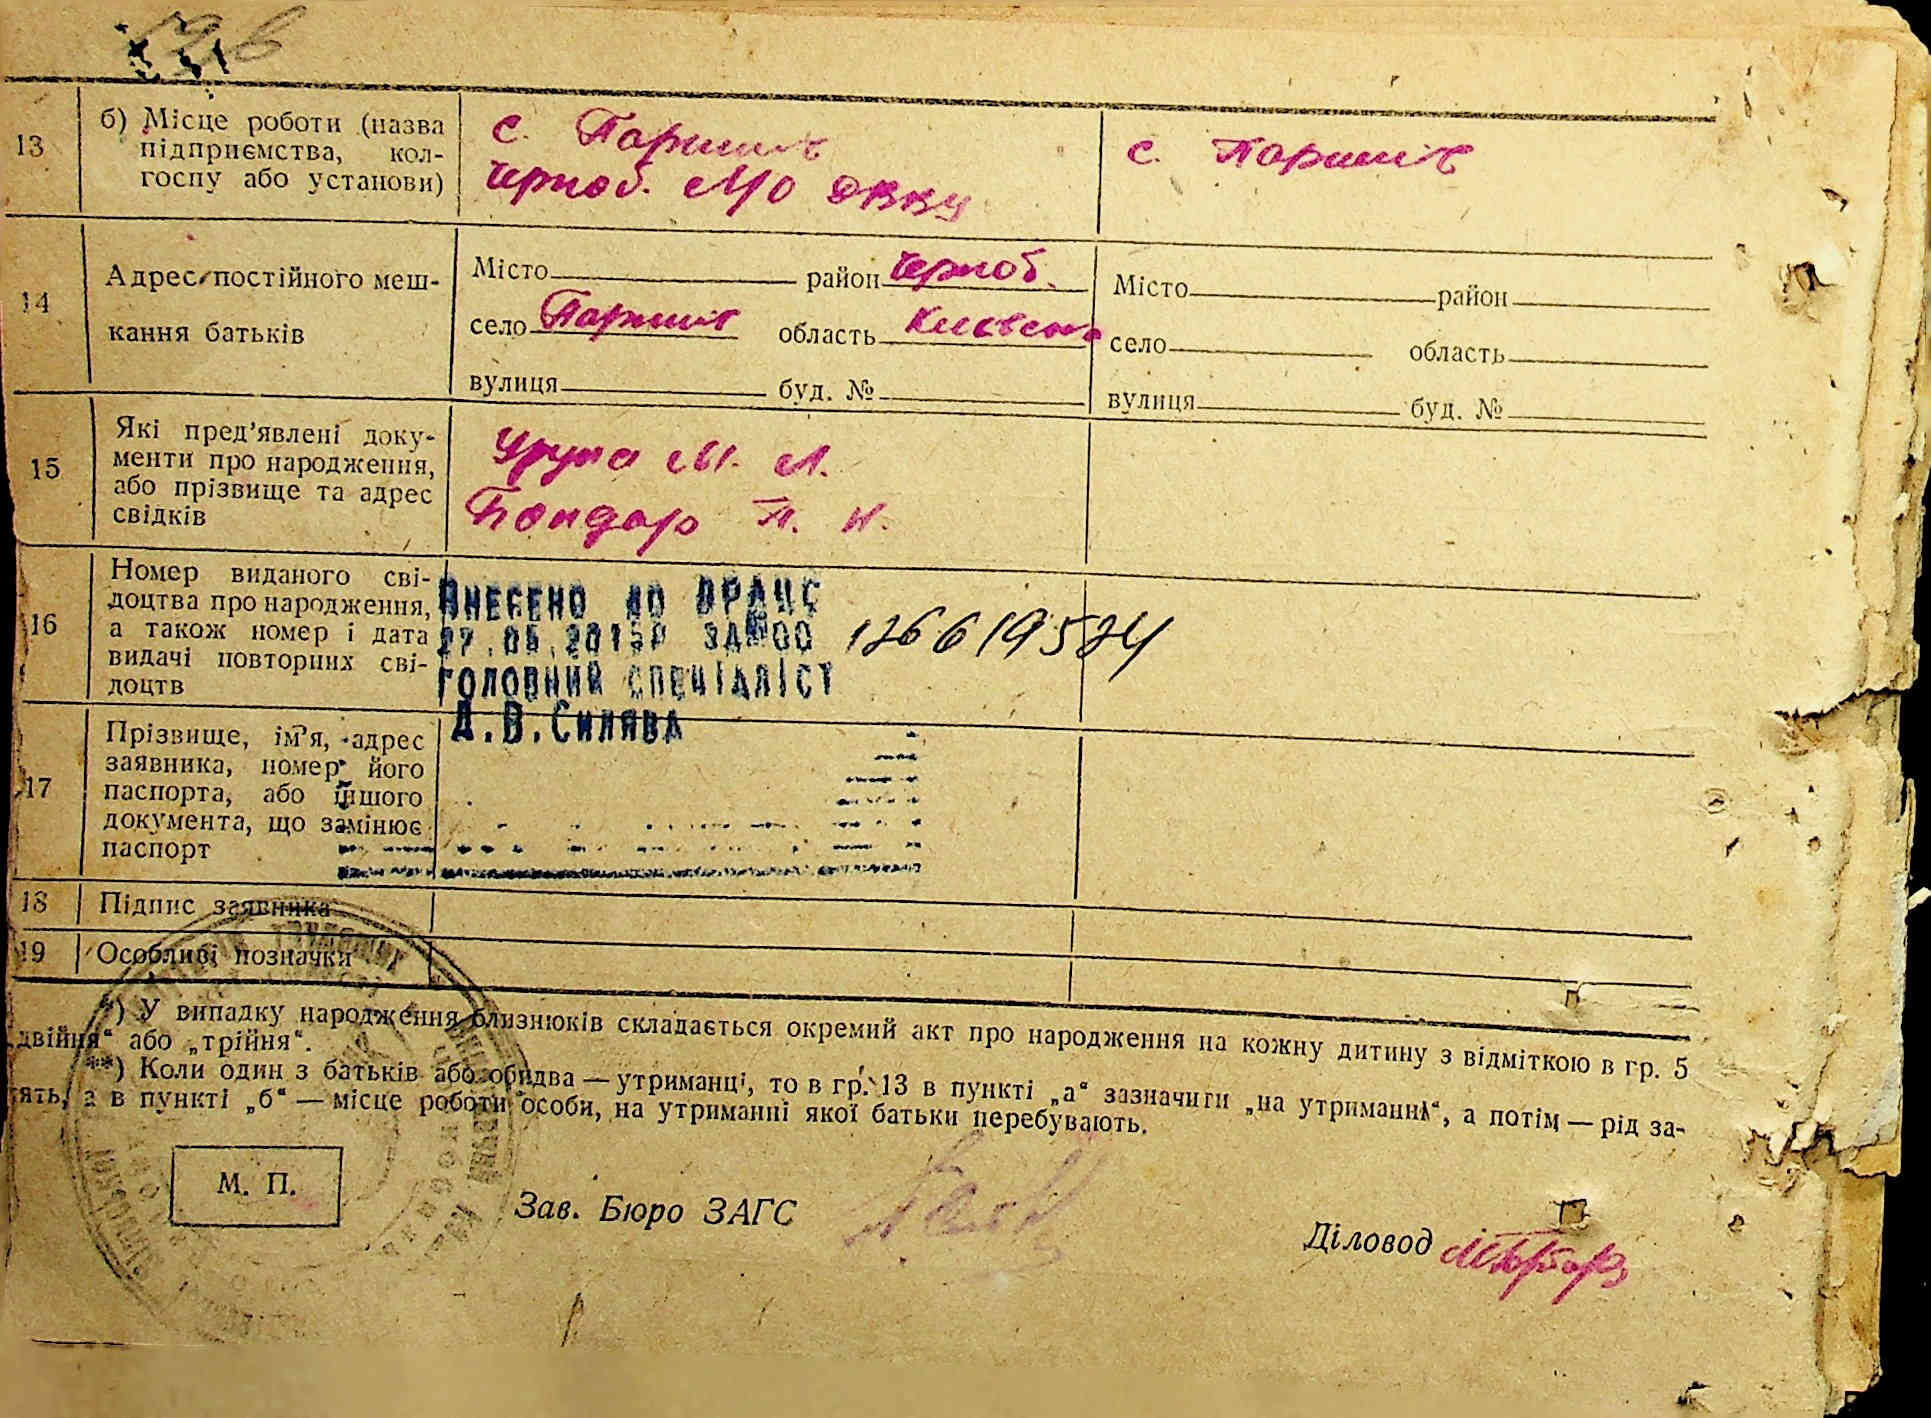 13
б) Місце роботи (назва
підприємства, кол-
госпу або установи)
с. Паришів
Черноб. МО ДВКУ
с. Паришів
14
Адрес постійного меш-
кання батьків
Місто район Черноб.
село Паришів область Киевска
вулиця буд. №
Місто район
село область
вулиця буд. №
15
Які пред’явлені доку-
менти про народження,
або прізвище та адрес
свідків
Урупа М. Л.
Бондар П. Н.
16
Номер виданого сві-
доцтва про народження,
а також номер і дата
видачі повторних сві-
доцтв
ВНЕСЕНО ДО ДРАЦС
27.05.2015Р ЗА №00 126619524
ГОЛОВНИЙ СПЕЦІАЛІСТ
Д.В.СИЛЯВА
17
Прізвище, ім’я, адрес
заявника, номер його
паспорта, або іншого
документа, що замінює
паспорт
18 Підпис заявника
19 Особливі позначки
*) У випадку народження близнюків складається окремий акт про народження на кожну дитину з відміткою в гр. 5
„двійня“ або „трійня“.
**) Коли один з батьків або обидва — утриманці, то в гр. 13 в пункті „а“ зазначити „на утриманні“, а потім — рід за-
нять, а в пункті „б“ — місце роботи особи, на утриманні якої батьки перебувають.
М. П.
Зав. Бюро ЗАГС
Діловод